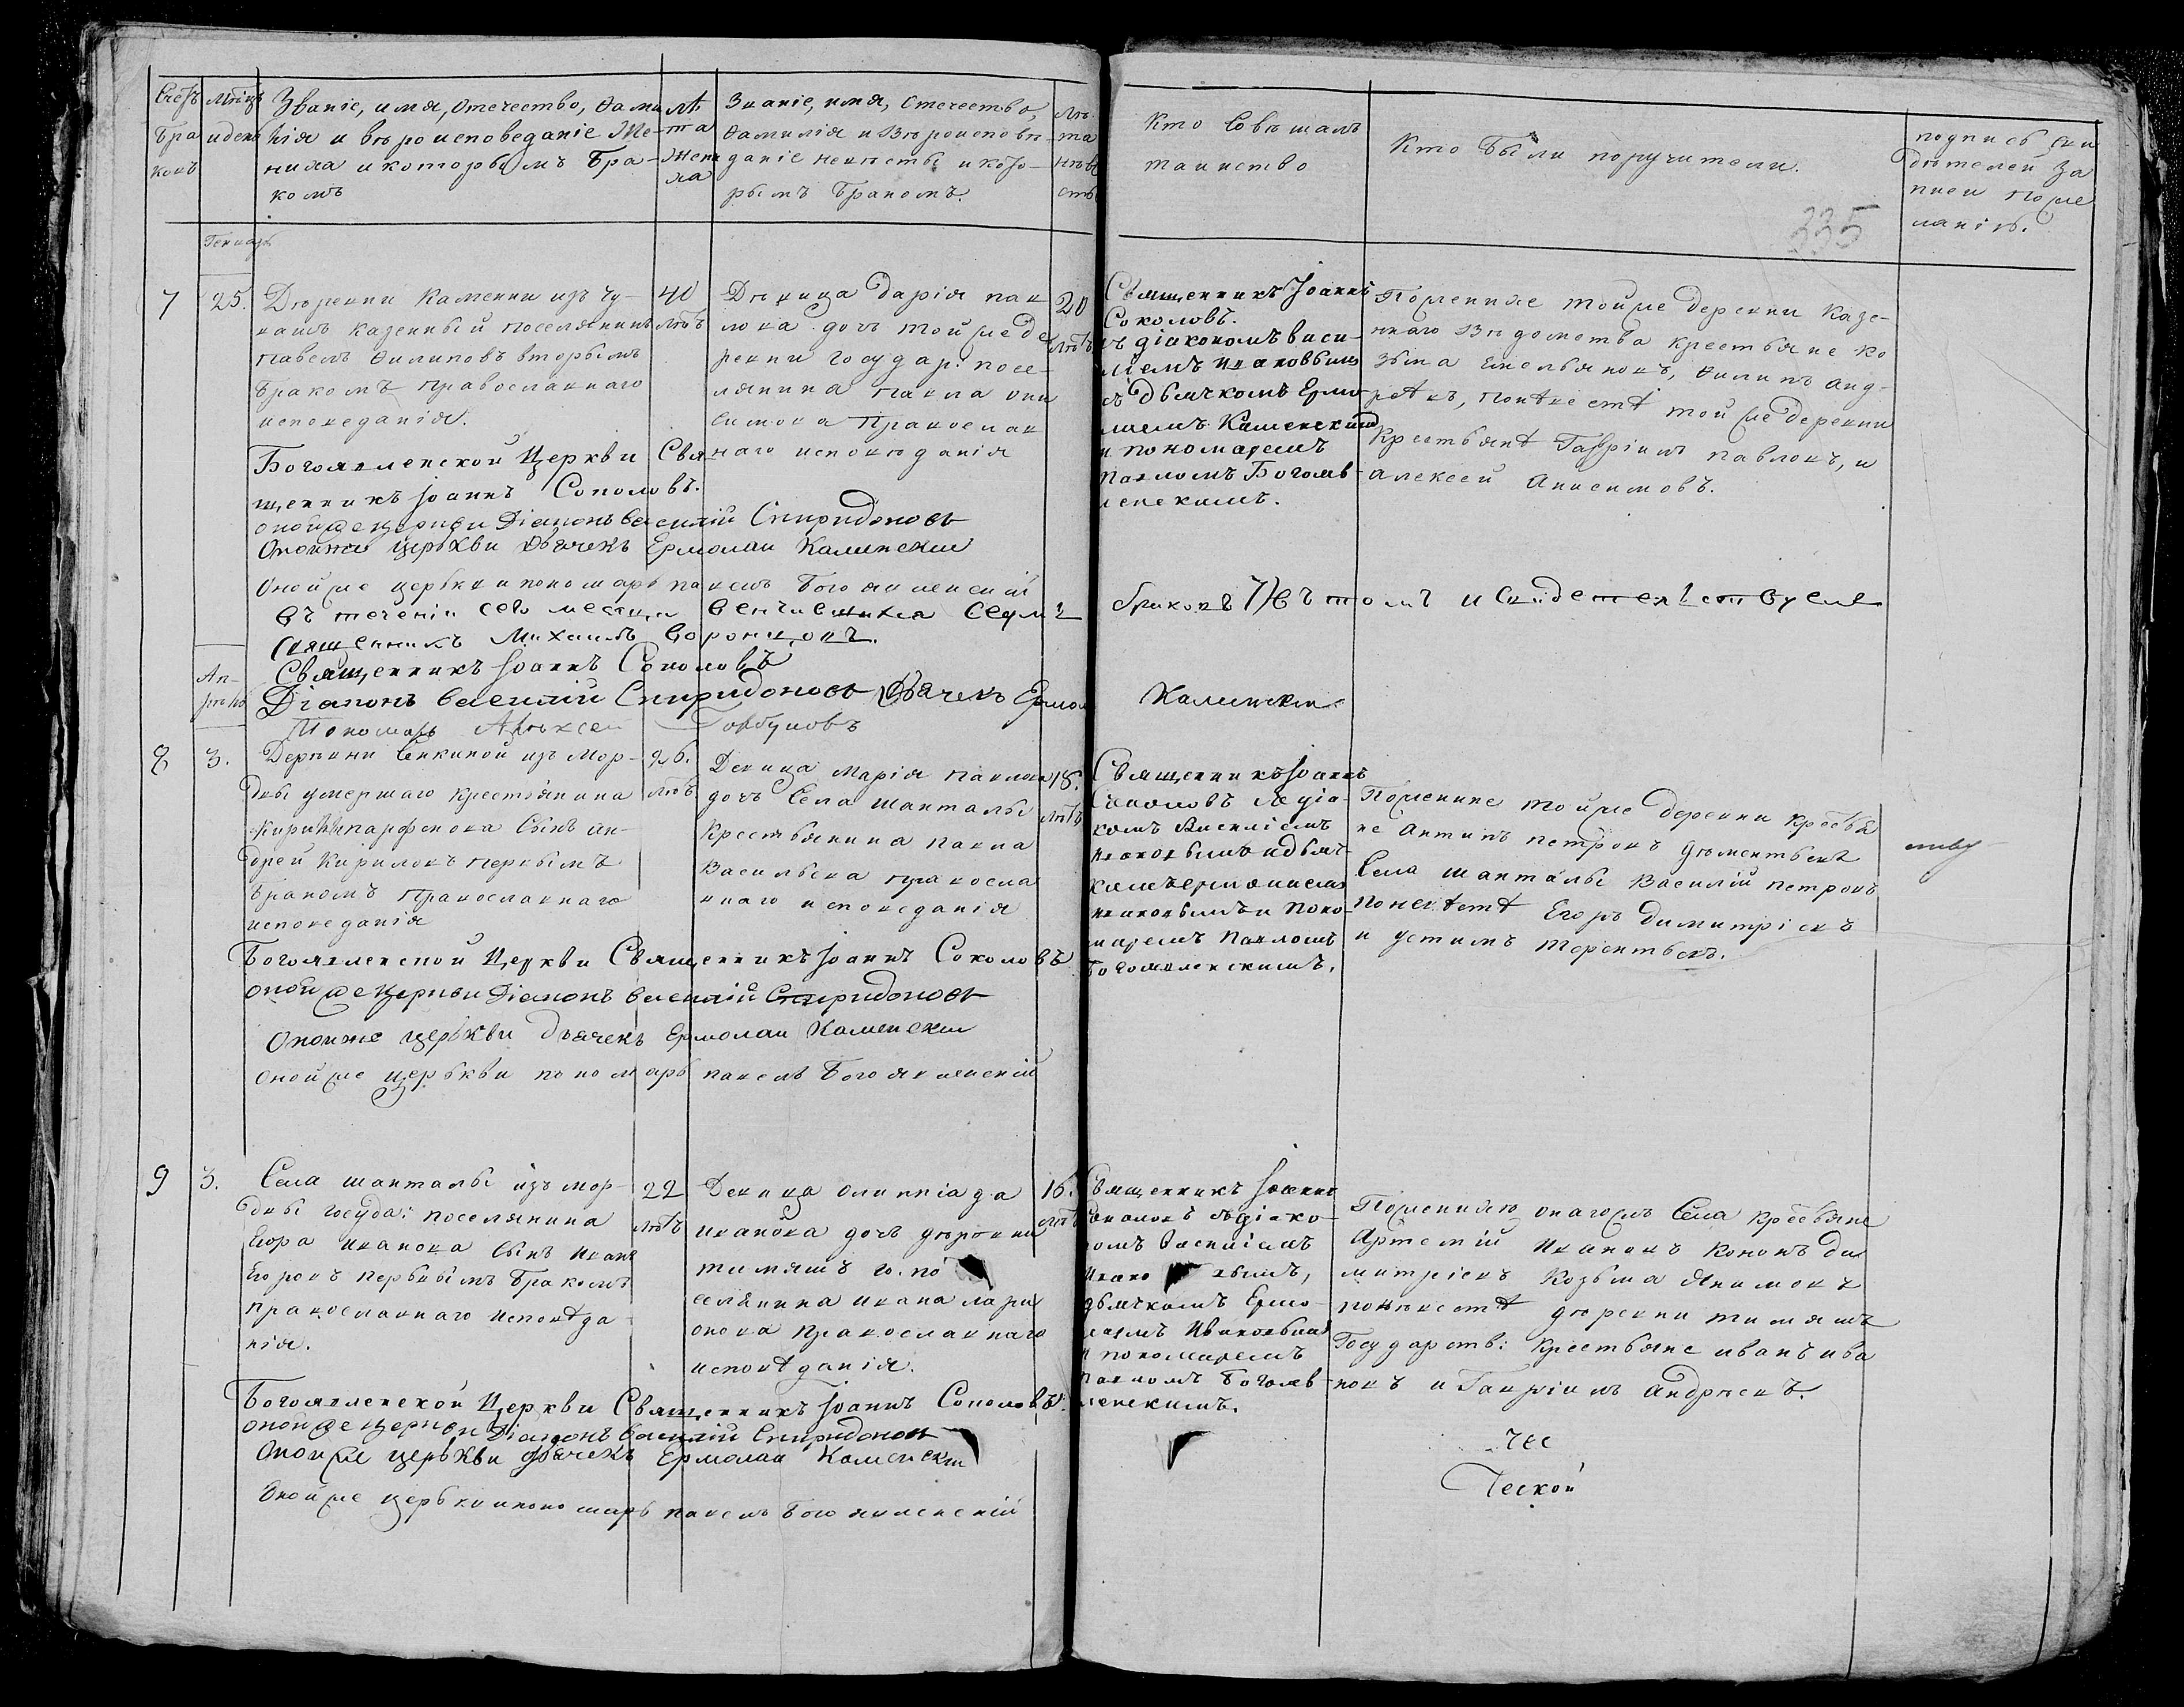 Счетъ
бра
ковъ
мѣсяцъ
и день
Званіе, имя, Отечество, Фами
лія и вѣроисповеданіе Же-
ниха и которымъ Бра-
комъ
лѣ
та
Жени
ха
Званіе, имя, Отечество,
Фамилія и Вѣроисповѣ
даніе невѣсты и кото-
рымъ бракомъ.
Лѣ
та
невѣ
сты
Кто Совѣршалъ
таинство
Кто Были поручители.
подпись сви
дѣтелей За
писи по же
ланію.
335
Генварь
7
25.
Дѣревни Каменки изъ чу-
вашъ казенный поселянинъ
Павелъ Филиповъ вторымъ
бракомъ православнаго
исповеданія.
40
лѣтъ
Дѣвица Дарія пав
лова дочь той же де
ревни государ. посе-
лянина Павла они
симова Православ
наго исповѣданія
20
лѣтъ
Священникъ Іоаннъ
Соколовъ.
съ діакономъ васи-
ліемъ Ивановымъ
съ дьячкомъ Ермо-
лаемъ Каменскимъ
и пономаремъ
Павломъ Богояв-
ленскимъ.
По женихе той же деревни Казе-
ннаго Вѣдомства крестьяне Ко
зьма Емельяновъ, Филипъ анд-
рѣевъ, по невестѣ той же деревни
Крестьянѣ Гаврiилъ павловъ, и
алексей Анисимовъ.
Богоявленской Церкви Священникъ Іоаннъ Соколовъ.
оной же церкви Діаконъ василій Спиридоновъ
Оной же церькви дьячекъ Ермолаи Каменскии
Оной же церькви пономарь павелъ Богоявленскій
въ теченіи сего месяца венчавшихся Седмь браковъ 7) въ томъ и свидетельствуемъ
священникъ Михаилъ Воронцовъ.
Священникъ Іоаннъ Соколовъ
Діаконъ василій Спиридоновъ Дьячекъ Ермол Каменскии
Пономарь Алексей Горбуновъ
Ап-
рѣль
8
3.
Деревни Енкиной изъ Мор-
двы умершаго крестьянина
Кирилы парфенова Сынъ ан-
дрей Кириловъ первымъ
бракомъ Православнаго
исповеданія
26.
лѣтъ
Девица Марія павлова
дочь Села шанталы
Крестьянина павла
Васильева православ
ннаго исповеданія
18.
лѣтъ
Священникъ Іоаннъ
Соколовъ съ діа-
комъ Василіемъ
Ивановымъ и дьяч-
комъ ермолаемъ
Ивановымъ и поно-
маремъ Павломъ
Богоявленскимъ.
По женихе той же деревни Кресья
не Антипъ петровъ
Села шанталы Василій петровъ
по невѣстѣ Егоръ Димитріевъ
и устимъ терентьевъ.
Богоявленской Церкви Священникъ Іоаннъ Соколовъ
оной же церкви Діаконъ василій Спиридоновъ
Оной же церькви дьячекъ Ермолаи Каменскии
Оной же церькви пономарь павелъ Богоявленскій
9
3.
Села шанталы изъ мор-
двы госуда: поселянина
Егора иванова Сынъ иванъ
Егоровъ первымъ бракомъ
православнаго исповѣда
нія.
22
лѣтъ
Девица олимпіада
иванова дочь дѣревни
тимяшъ го. по
селянина ивана лари
онова православнаго
исповѣданія.
16.
лѣтъ
Священникъ Іоаннъ
Соколовъ съ діако-
номъ Василіемъ
Ивановымъ,
дьячкомъ Ермо-
лаемъ Ивановымъ
и пономаремъ
Павломъ Богояв-
ленскимъ.
По жениху онагожъ Села кресьяне
Артемій Ивановъ Кононъ Ди
митріевъ Козьма Якимовъ
по невестѣ дѣревни тимяшъ
Государств: крестьяне иванъ ива
новъ и Гавріилъ андрѣевъ.
Богоявленской Церкви Священникъ Іоаннъ Соколовъ.
оной же церкви Діаконъ василій Спиридоновъ
Оной же церькви дьячекъ Ермолаи Каменскии
Оной же церькви пономарь павелъ Богоявленскій
чес
Ческой